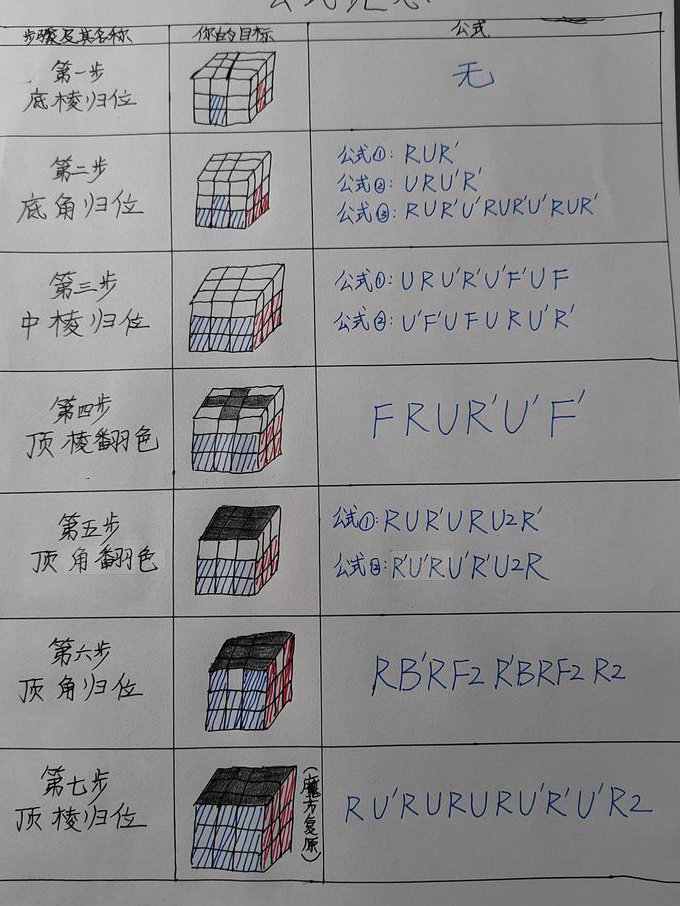 公式汇总
步骤及其名称
你的目标
公式
第一步
底棱归位
无
第二步
底角归位
公式①: RUR'
公式②: URU'R'
公式③: RUR'U'RUR'U'RUR'
第三步
中棱归位
公式①: URU'R'U'F'UF
公式②: U'F'UFURU'R'
第四步
顶棱翻色
FRUR'U'F'
第五步
顶角翻色
公式①: RUR'URU2R'
公式②: R'U'RU'R'U2R
第六步
顶角归位
RB'RF2R'BRF2R2
第七步
顶棱归位
(魔方复原)
RU'RURURU'R'U'R2